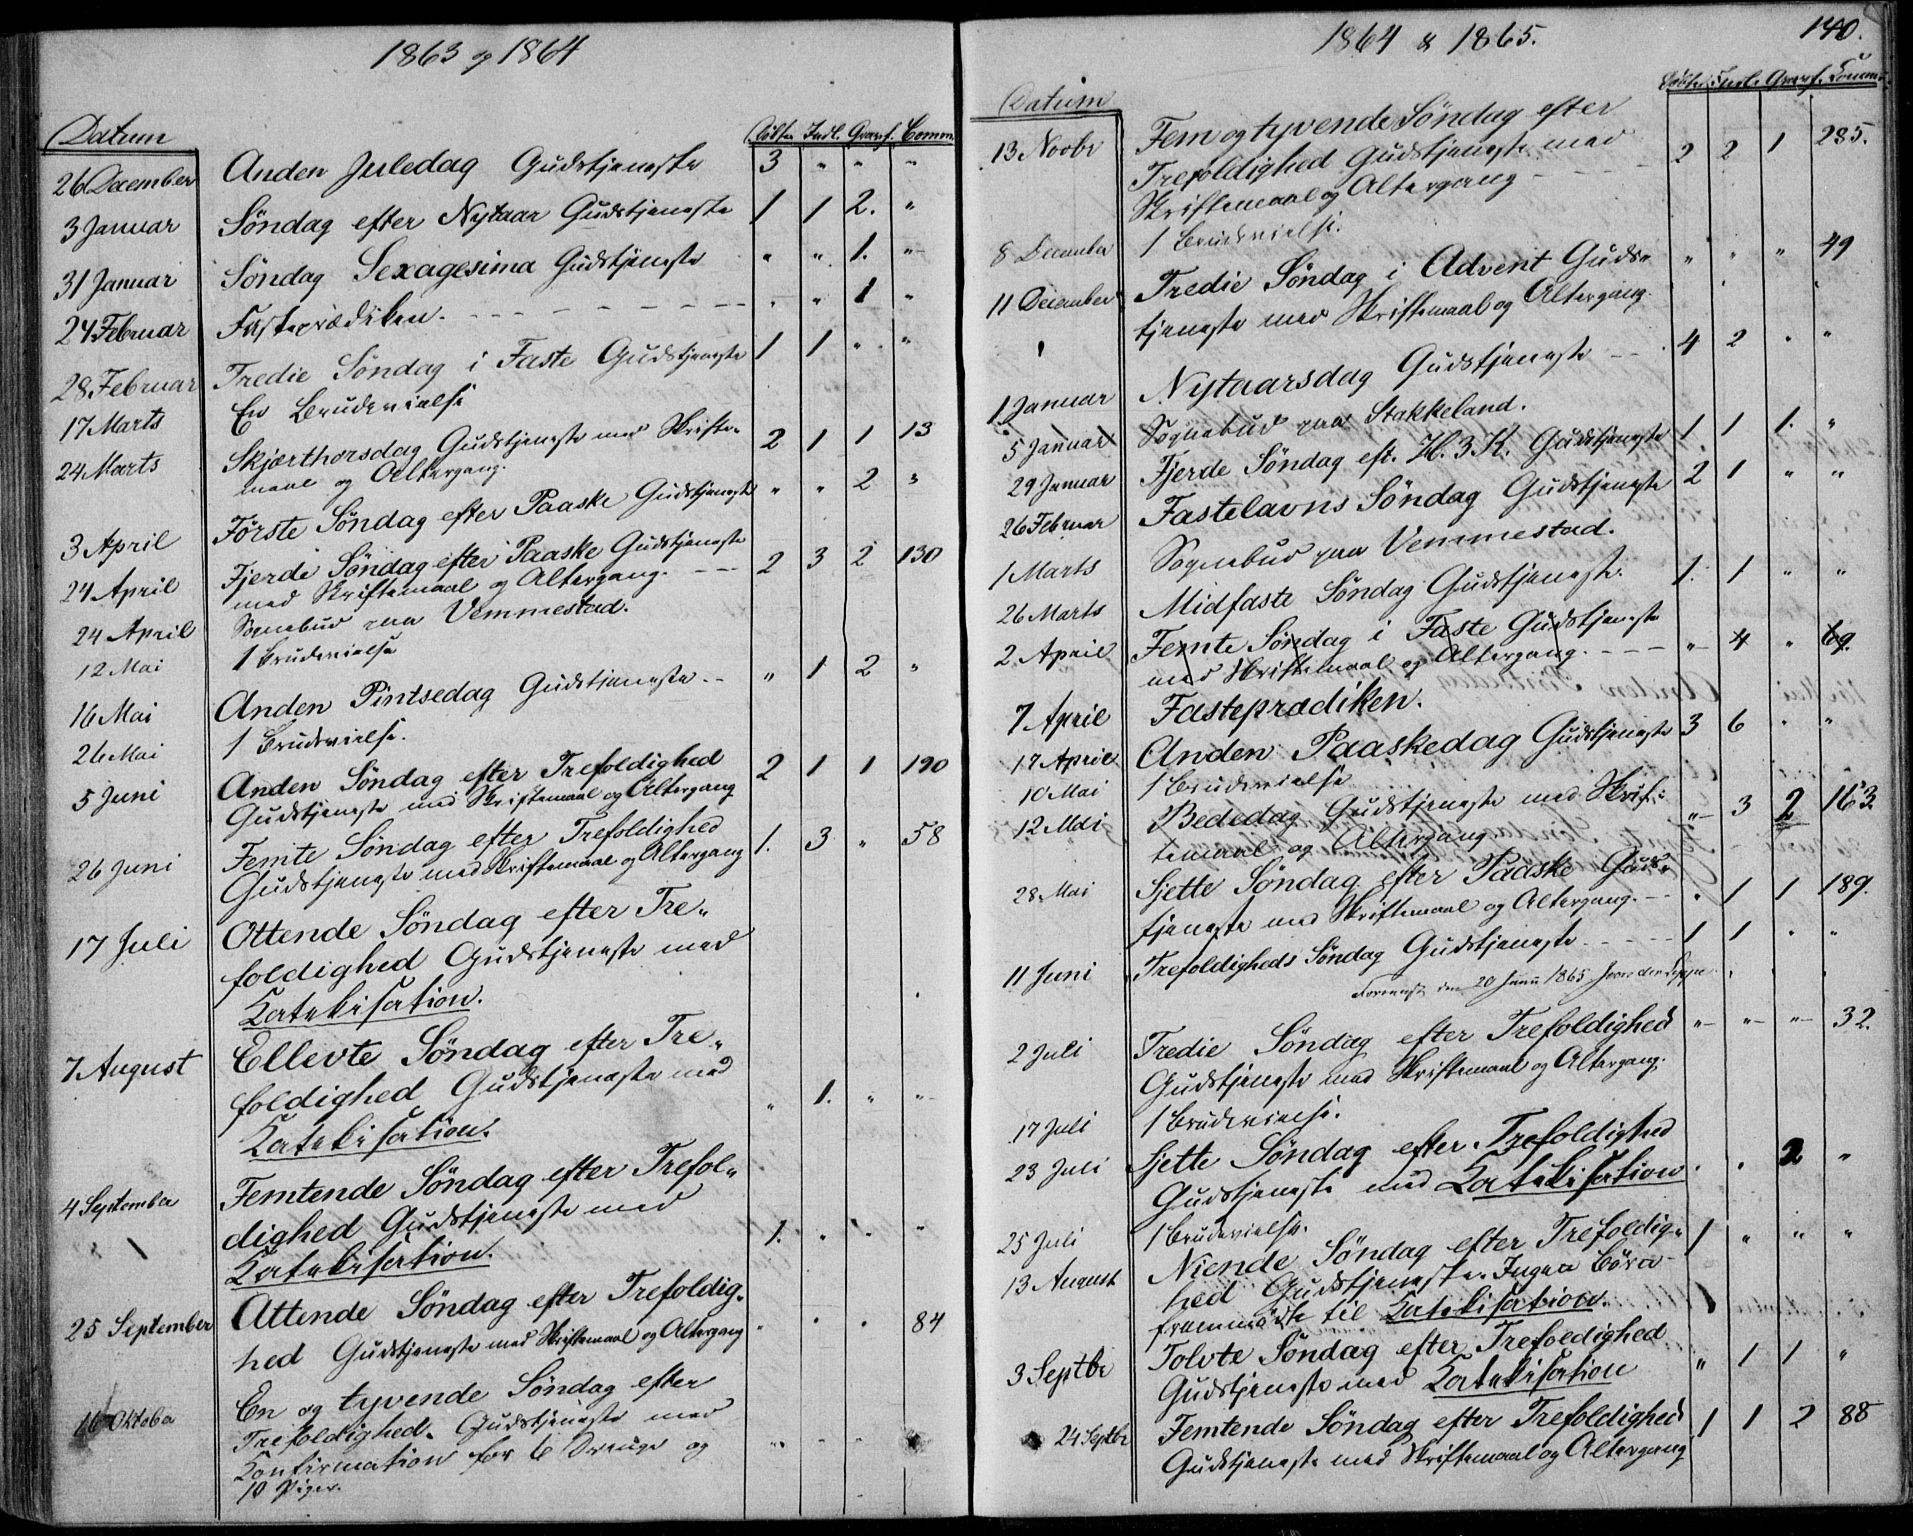 1863 og 1864
Datum Døbte Indl. Gravf. Comm.
26 December Anden Juledag Gudstjeneste 3 " " "
3 Januar Søndag efter Nytaar Gudstjeneste 1 1 2. "
31 Januar Søndag Sexagesima Gudstjeneste " " 1. "
24 Februar Fasteprædiken. " " 1 "
28. Februar Tredie Søndag i Faste Gudstjeneste 1 1 " "
17 Marts En Brudevielse
24 Marts Skjærthorsdag Gudstjeneste med Skrifte- 2 1 1 13
maal og Altergang.
3 April Første Søndag efter Paaske Gudstjeneste " " 2 "
24 April Fjerde Søndag efter Paaske Gudstjeneste 2 3 2 130
med Skriftemaal og Altergang.
24 April Sognebud paa Vemmestad.
12 Mai 1 Brudevielse
16 Mai Anden Pintsedag Gudstjeneste " 1 2 "
26 Mai 1 Brudevielse.
5 Juni Anden Søndag efter Trefoldighed 2 1 1 190
Gudstjeneste med Skriftemaal og Altergang
26 Juni Femte Søndag efter Trefoldighed 1. 3 " 58
Gudstjeneste med Skriftemaal og Altergang
17 Juli Ottende Søndag efter Tre-
foldighed Gudstjeneste med
Katekisation.
7 August Ellevte Søndag efter Tre-
foldighed Gudstjeneste med " 1. " "
Katekisation.
4 September Femtende Søndag efter Trefol-
dighed Gudstjeneste med 1. " " "
Katekisation.
25 September Attende Søndag efter Trefoldig-
hed Gudstjeneste med Skriftemaal og Altergang " " " 84
16 Oktober En og tyvende Søndag efter
Trefoldighed. Gudstjeneste med
Konfirmation for 6 Drenge og
10 Piger.
1864 & 1865. 140.
Datum Døbte Indl. Gravf. Comm.
13 Novbr Fem og tyvende Søndag efter
Trefoldighed Gudstjeneste med 2 2 1 285.
Skriftemaal og Altergang
8 December 1 Brudevielse.
11 December Tredie Søndag i Advent Guds- " " " 49
tjeneste med Skriftemaal og Altergang.
1 Januar Nytaarsdag Gudstjeneste 4 2 " "
5 Januar Sognebud paa Stakkeland.
29 Januar Fjerde Søndag eft. H. 3 K. Gudstjeneste 1. 1 1. "
26 Februar Fastelavns Søndag Gudstjeneste 2 1 " "
1 Marts Sognebud paa Vemmestad.
26 Marts Midfaste Søndag Gudstjeneste. 1. 1 " "
2 April Femte Søndag i Faste Gudstjeneste
med Skriftemaal og Altergang. " 4 " 69.
7 April Fasteprædiken.
17 April Anden Paaskedag Gudstjeneste 3 6 " "
10 Mai 1 Brudevielse
12 Mai Bededag Gudstjeneste med Skrif- " 3 2 163.
temaal og Altergang
28 Mai Sjette Søndag efter Paaske Guds-
tjeneste med Skriftemaal og Altergang. " 1 1 189.
11 Juni Trefoldigheds Søndag Gudstjeneste 1 1 " "
den 20 Juni 1865
2 Juli Tredie Søndag efter Trefoldighed " " " 32.
Gudstjeneste med Skriftemaal og Altergang.
17 Juli 1 Brudevielse.
23 Juli Sjette Søndag efter Trefoldighed
Gudstjeneste med Katekisation " " 2 "
25 Juli 1 Brudevielse.
13 August Niende Søndag efter Trefoldig- 1 " " "
hed Gudstjeneste. Ingen Børn
fremmødte til Katekisation.
3 Septbr Tolvte Søndag efter Trefoldighed " 1 1 "
Gudstjeneste med Katekisation
24 Septbr Femtende Søndag efter Trefoldighed 1 1 2 88
Gudstjeneste med Skriftemaal og Altergang